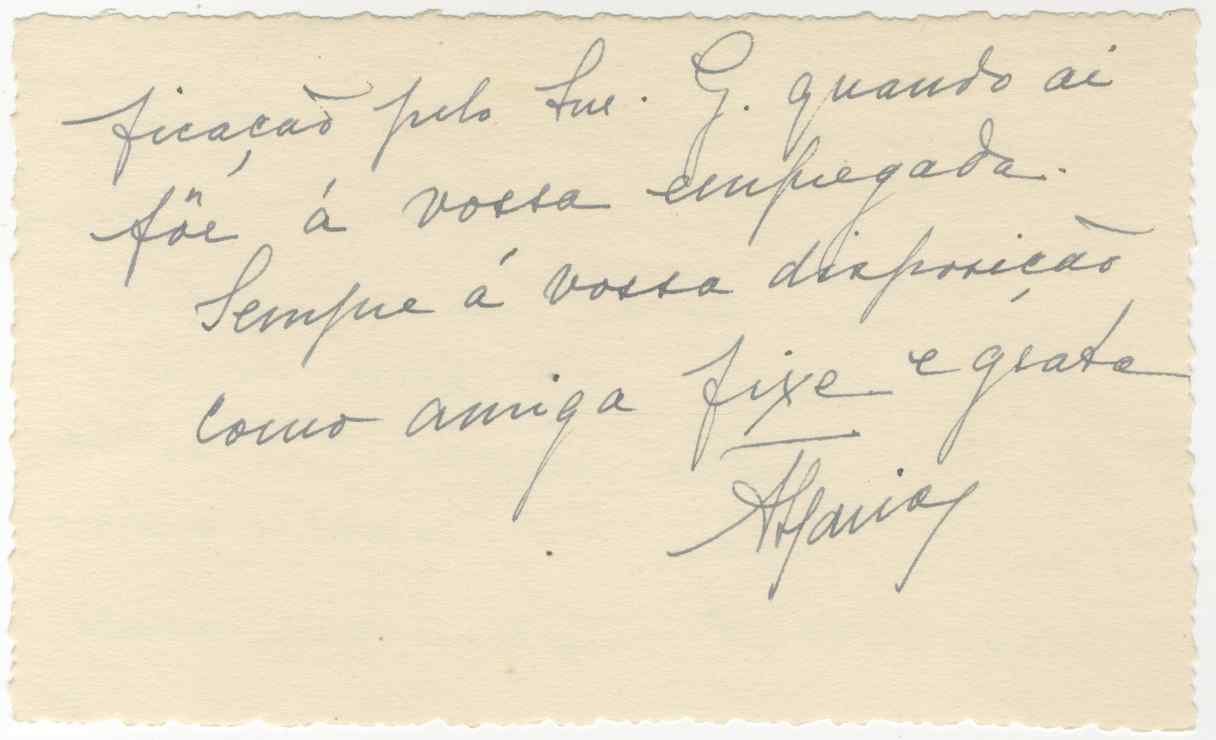 ficação pelo Sne. G. quando aí
fôr á vossa empregada.
Sempre á vossa disposição
como amiga fixe e grata